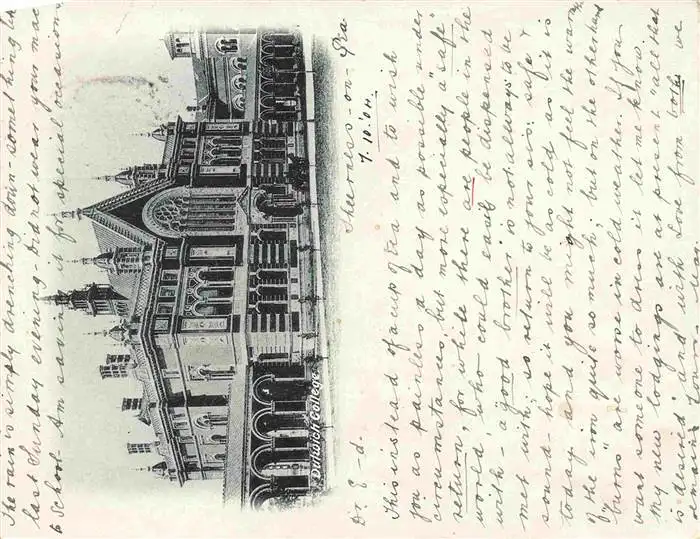 The rain is simply drenching down - something li
last Sunday evening - Did not wear your mac
to School. Am saving it for "special" occasions
Dulwich College
Sheerness-on-Sea
7.10.'04.
Dr. E-d.
This instead of a cup of tea and to wish
you as painless a day as possible under
circumstances, but more especially a "safe"
return", for while there are people in the
world who could easily be dispensed
with - a good brother is not always to be
met with, so return to your sis. safe &
sound - hope it will be as cold as it is
today and you might not feel the warm
of the iron quite so much, but on the otherhand
"burns" are worse in cold weather. If you
want someone to dress it let me know.
My new lodgings are at present "all that
is desired" and with Love from both we